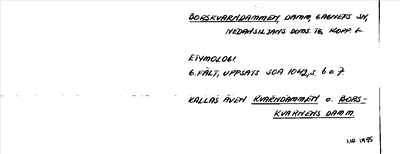 BORSKVARNDAMMEN, DAMM, GAGNEFS SN,
NEDANSILJANS DOMS. TG, KOPP. L.
ETYMOLOGI
G. FÄLT, UPPSATS SOA 1042, S. 6 o. 7.
KALLAS ÄVEN KVARNDAMMEN o. BORS-
KVARNENS DAMM.
1975